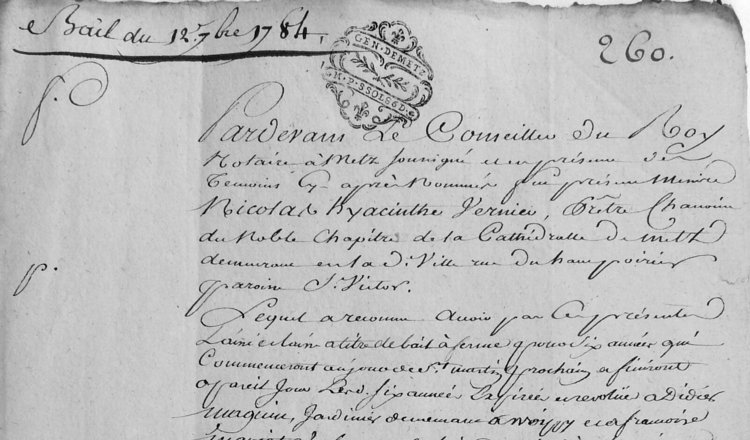 Bail du 12 7bre 1784,
260.
GEN·DEMETZ
Pardevant Le Conseiller du Roy
Notaire à Metz soussigné et en présence des
Temoins Cy après Nommés fut présent Messire
Nicolas hyacinthe Vernier, Prêtre Chanoine
du Noble Chapitre de la Cathédralle de Metz
demeurant en la d. Ville rue du haut poirier
paroisse St. Victor.
Lequel a reconnu avoir par Ces présentes
Laissé et laisse a titre de bail à ferme pour six années qui
Commenceront au jour de St. martin prochain et finiront
a pareil Jour Lesd. six années Expirées et revolües a Didier
maquin, Jardinier demeurant a woippy et a françoise